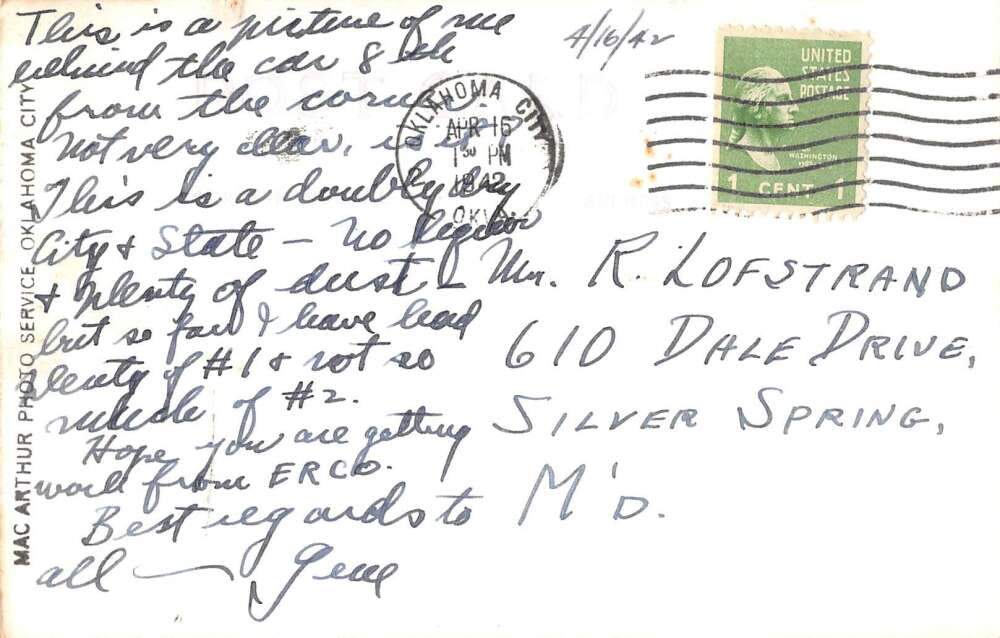 This is a picture of me
behind the car 8 th
from the corner.
Not very clear, is it?
This is a doubly dry
City & State – no liquor
& plenty of dust –
but so far I have had
plenty of #1 & not so
much of #2.
Hope you are getting
work from ERCO.
Best regards to
all — Gene
4/16/42
OKLAHOMA CITY
APR 16
1 30 PM
1942
OKLA
UNITED
STATES
POSTAGE
WASHINGTON
1 CENT 1
Mr. R. LOFSTRAND
610 DALE DRIVE,
SILVER SPRING,
M'D.
MAC ARTHUR PHOTO SERVICE, OKLAHOMA CITY